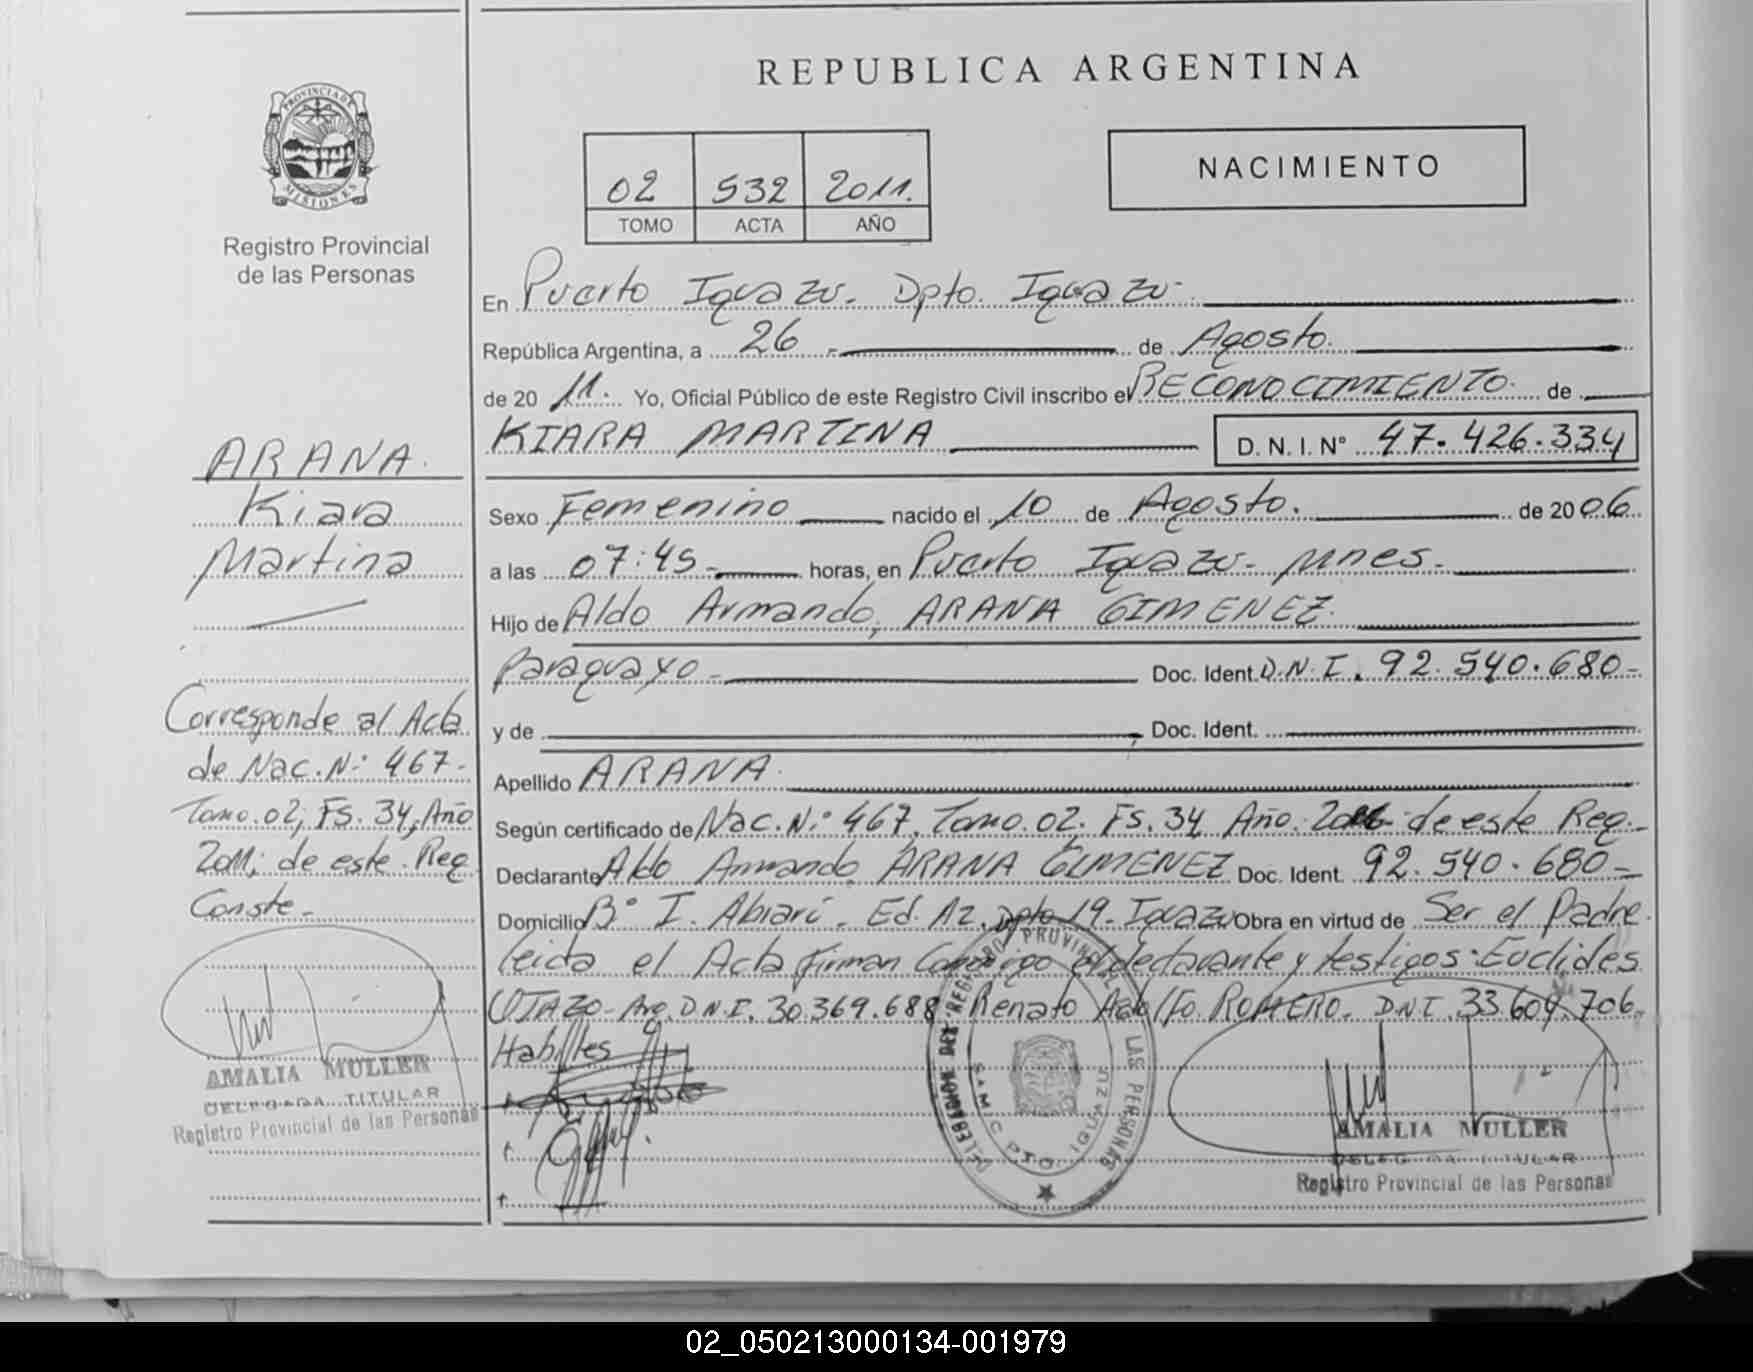 REPUBLICA ARGENTINA
PROVINCIA DE
MISIONES
Registro Provincial
de las Personas
02 532 2011.
TOMO ACTA AÑO
NACIMIENTO
En Puerto Iguazu - Dpto. Iguazu -
República Argentina, a 26 - de Agosto.
de 20 11. Yo, Oficial Público de este Registro Civil inscribo el RECONOCIMIENTO de
KIARA MARTINA D. N. I. N° 47.426.334
Sexo Femenino nacido el 10 de Agosto. de 20 06
a las 07:45 - horas, en Puerto Iguazu - Mnes -
Hijo de Aldo Armando, ARANA GIMENEZ
Paraguayo - Doc. Ident. D.N.I. 92.540.680 -
y de Doc. Ident.
Apellido ARANA
Según certificado de Nac. N:° 467, Tomo. 02. FS. 34 Año. de este Reg. -
Declarante Aldo Armando ARANA GIMENEZ Doc. Ident. 92.540.680 -
Domicilio B° I. Abiarí - Ed. 12. Dpto 19 - Iguazu Obra en virtud de Ser el Padre
leida el Acta firman Conmigo el declarante y testigos: Euclides
D.N.I. 30.369.688 Renato Adolfo ROMERO - DNI. 33.609.706.
Habilles
ARANA.
Kiara
Martina
Corresponde al Acta
de Nac. N:° 467 -
Tomo. 02, FS. 34, Año
2011, de este Reg
Conste -
AMALIA MULLER
DELEGADA TITULAR
Registro Provincial de las Personas
DELEGACION DEL REGISTRO PROVINCIAL DE LAS PERSONAS
PTO. IGUAZU
AMALIA MULLER
DELEGADA TITULAR
Registro Provincial de las Personas
02_050213000134-001979